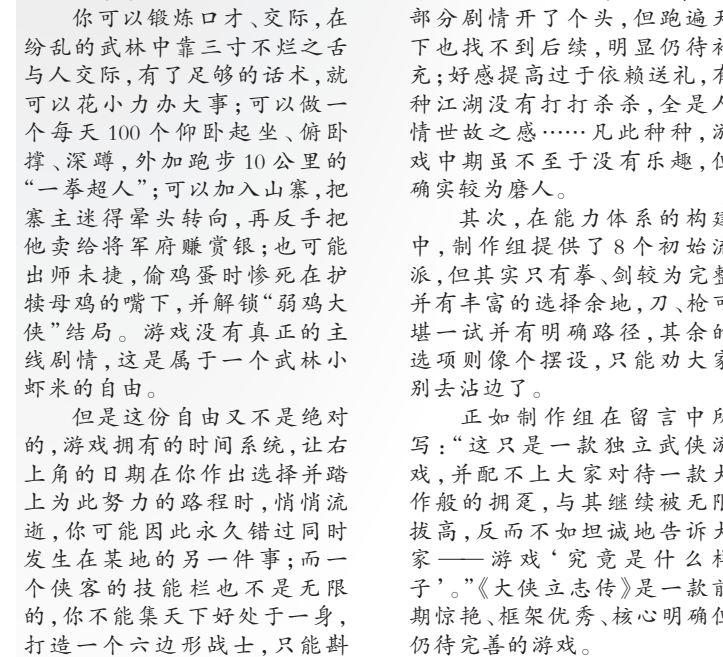 你可以锻炼口才、交际，在
纷乱的武林中靠三寸不烂之舌
与人交际，有了足够的话术，就
可以花小力办大事；可以做一
个每天 100 个仰卧起坐、俯卧
撑、深蹲，外加跑步 10 公里的
“一拳超人”；可以加入山寨，把
寨主迷得晕头转向，再反手把
他卖给将军府赚赏银；也可能
出师未捷，偷鸡蛋时惨死在护
犊母鸡的嘴下，并解锁“弱鸡大
侠”结局。游戏没有真正的主
线剧情，这是属于一个武林小
虾米的自由。
但是这份自由又不是绝对
的，游戏拥有的时间系统，让右
上角的日期在你作出选择并踏
上为此努力的路程时，悄悄流
逝，你可能因此永久错过同时
发生在某地的另一件事；而一
个侠客的技能栏也不是无限
的，你不能集天下好处于一身，
打造一个六边形战士，只能斟
部分剧情开了个头，但跑遍天
下也找不到后续，明显仍待补
充；好感提高过于依赖送礼，有
种江湖没有打打杀杀，全是人
情世故之感……凡此种种，游
戏中期虽不至于没有乐趣，但
确实较为磨人。
其次，在能力体系的构建
中，制作组提供了 8 个初始流
派，但其实只有拳、剑较为完整
并有丰富的选择余地，刀、枪可
堪一试并有明确路径，其余的
选项则像个摆设，只能劝大家
别去沾边了。
正如制作组在留言中所
写：“这只是一款独立武侠游
戏，并配不上大家对待一款大
作般的拥趸，与其继续被无限
拔高，反而不如坦诚地告诉大
家——游戏‘究竟是什么样
子’。”《大侠立志传》是一款前
期惊艳、框架优秀、核心明确但
仍待完善的游戏。